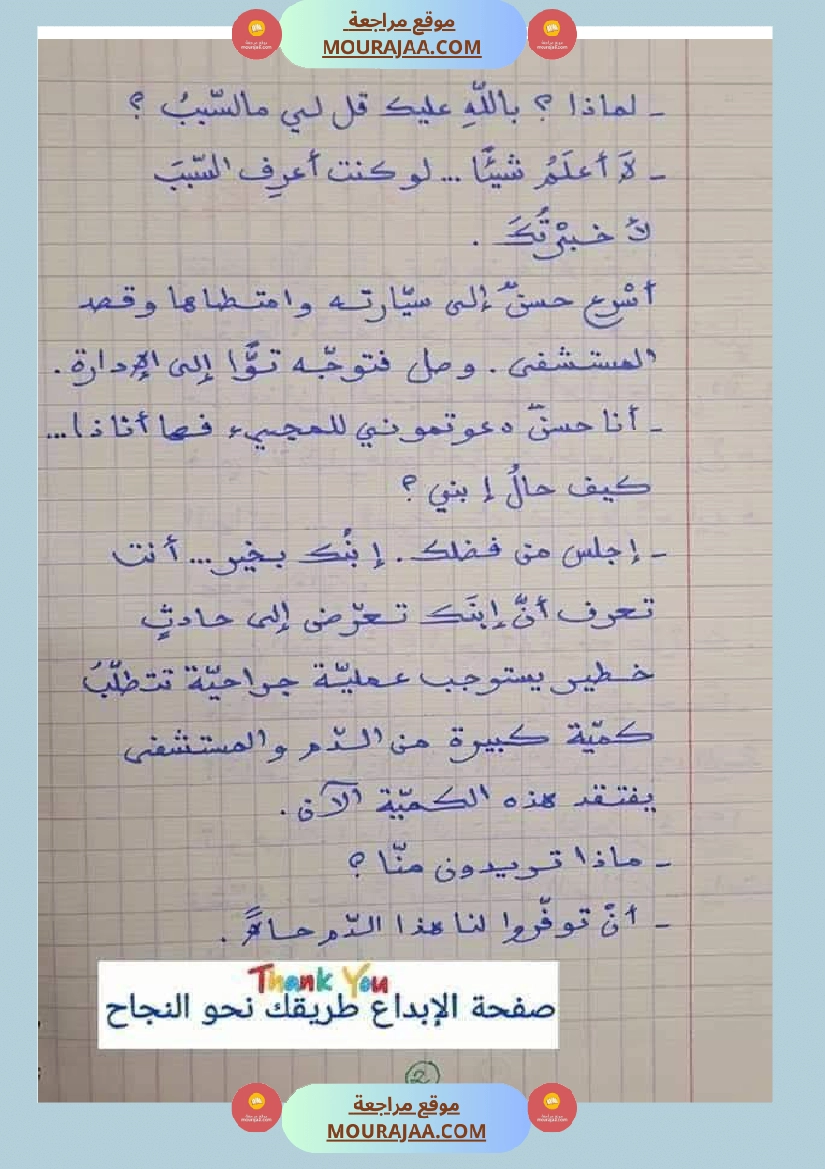 موقع مراجعة
MOURAJAA.COM
- لماذا ؟ باللّهِ عليك قل لي مالسّببُ ؟
- لاَ أعلَمُ شيئًا ... لو كنت أعرِف السّببَ
لأخبرْتُكَ .
أسْرع حسنٌ إلى سيّارته وامتطاها وقصد
المستشفى . وصل فتوجّه توًّا إلى الإدارة .
- أنا حسنٌ دعوتموني للمجيء فها أنا ذا...
كيف حالُ إبني ؟
- إجلس من فضلك . إبنُك بخير... أنت
تعرف أنّ إبنَك تعرّض إلى حادثٍ
خطير يستوجب عمليّة جراحيّة تتطلّبُ
كميّة كبيرة من الدّم والمستشفى
يفتقد هذه الكميّة الآن .
- ماذا تريدون منّا ؟
- أنّ توفّروا لنا هذا الدّم حالاً .
Thank You
صفحة الإبداع طريقك نحو النجاح
2
موقع مراجعة
MOURAJAA.COM